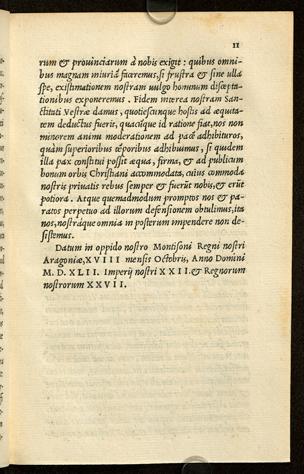 11
rum & prouinciarum à nobis exigit: quibus omni-
bus magnam iniuriā faceremus, si frustra & sine ulla
spe, existimationem nostram uulgo hominum discepta-
tionibus exponeremus. Fidem interea nostram San-
ctitati Vestræ damus, quotiescunque hostis ad æquita-
tem deductus fuerit, quacūque id ratione fiat, nos non
minorem animi moderationem ad pacē adhibituros,
quàm superioribus tēporibus adhibuimus, si quidem
illa pax constitui possit æqua, firma, & ad publicum
bonum orbis Christiani accommodata, cuius commoda
nostris priuatis rebus semper & fuerūt nobis, & erūt
potiora. Atque quemadmodum promptos nos & pa-
ratos perpetuo ad illorum defensionem obtulimus, ita
nos, nostráque omnia in posterum impendere non de-
sistemus.
Datum in oppido nostro Montisoni Regni nostri
Aragoniæ, XVIII mensis Octobris, Anno Domini
M. D. XLII. Imperij nostri XXII. & Regnorum
nostrorum XXVII.